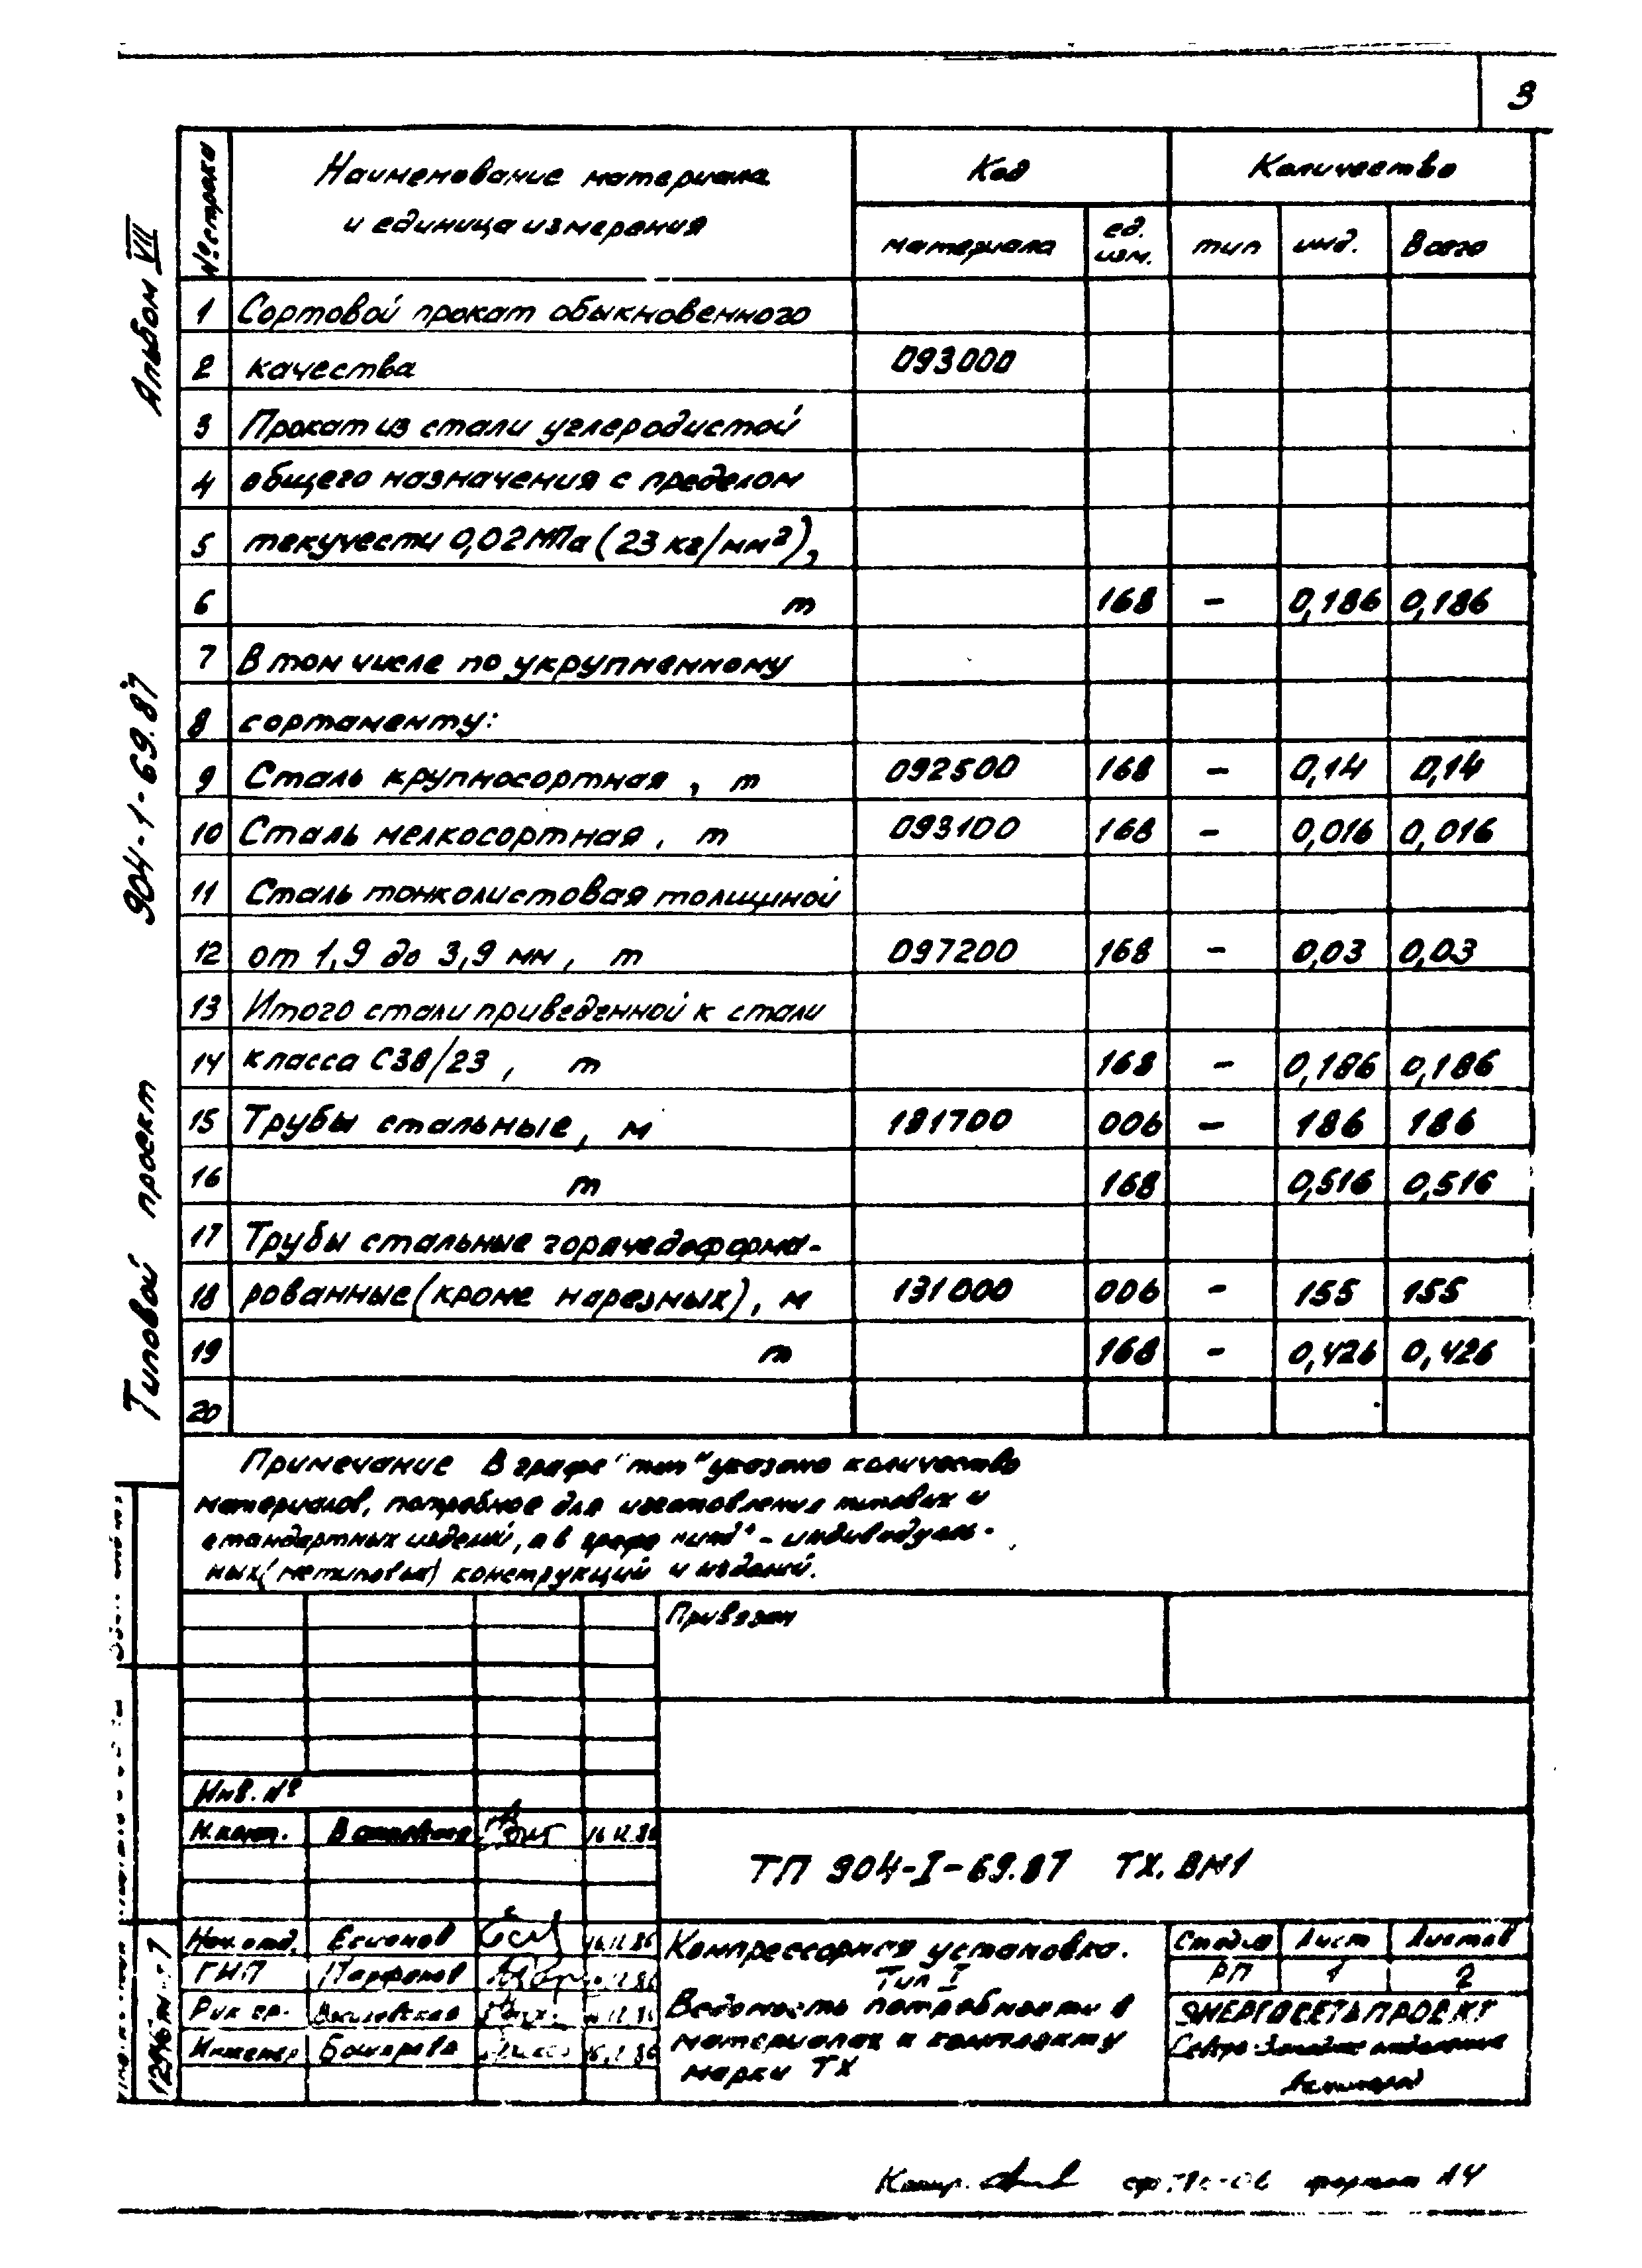 3
Альбом VII
904-1-69.87
Типовой проект
№ строки
Наименование материала
и единица измерения
Код
Количество
материала
ед.
изм.
тип
инд.
Всего
1 Сортовой прокат обыкновенного
2 качества 093000
3 Прокат из стали углеродистой
4 общего назначения с пределом
5 текучести 0,02 МПа (23 кг/мм²),
6 т 168 - 0,186 0,186
7 В том числе по укрупненному
8 сортаменту:
9 Сталь крупносортная, т 092500 168 - 0,14 0,14
10 Сталь мелкосортная, т 093100 168 - 0,016 0,016
11 Сталь тонколистовая толщиной
12 от 1,9 до 3,9 мм, т 097200 168 - 0,03 0,03
13 Итого стали приведенной к стали
14 класса С38/23, т 168 - 0,186 0,186
15 Трубы стальные, м 181700 006 - 186 186
16 т 168 0,516 0,516
17 Трубы стальные горячедеформи-
18 рованные (кроме нарезных), м 131000 006 - 155 155
19 т 168 - 0,426 0,426
20
Примечание В графе "тип" указано количество
материалов, потребное для изготовления типовых и
стандартных изделий, а в графе "инд" - индивидуаль-
ных (нетиповых) конструкций и изделий.
Привязан
Инв. №
Н.конт. 16.12.86
ТП 904-I-69.87 ТХ.ВМ1
Нач. отд. Есипов 16.12.86
ГИП Парфенов
Рук гр.
Инженер
Компрессорная установка.
Тип I
Ведомость потребности в
материалах к комплекту
марки ТХ
Стадия Лист Листов
РП 1 2
ЭНЕРГОСЕТЬПРОЕКТ
Северо-Западное отделение
Ленинград
Копир. формат А4